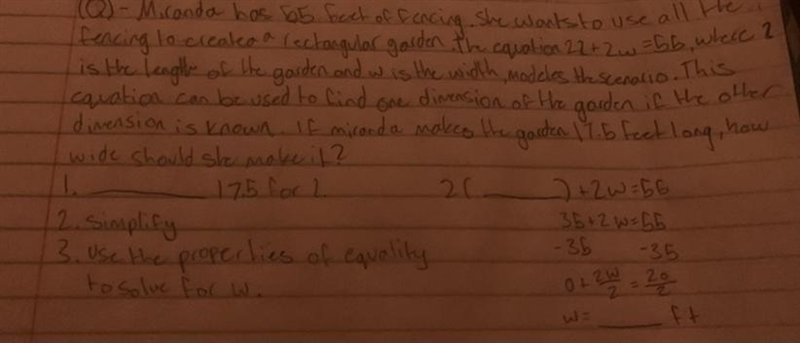 (Q)- Miranda has 55 feet of fencing. She wants to use all the
fencing to create a rectangular garden. The equation 2l+2w=55, where l
is the length of the garden and w is the width, modeles the scenario. This
equation can be used to find one dimension of the garden if the other
dimension is known. If miranda makes the garden 17.5 feet long, how
wide should she make it?
1. ________ 17.5 for l. 2( ______ )+2w=55
2. Simplify 35+2w=55
3. Use the properties of equality -35 -35
to solve for w. 0+2w/2=20/2
w= _____ ft